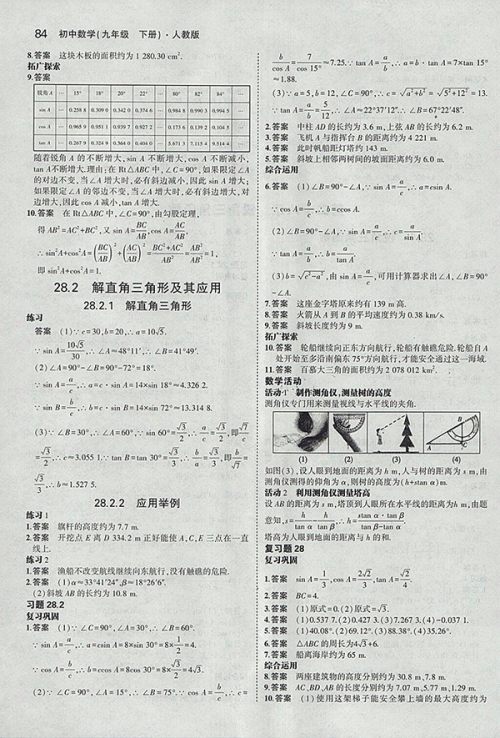 84 初中数学(九年级 下册)·人教版
8.答案 这块木板的面积约为 1 280.30 cm².
拓广探索
9.答案
锐角A … 15° 18° 20° 22° … 80° 82° 84° …
sin A … 0.258 8 0.309 0 0.342 0 0.374 6 … 0.984 8 0.990 3 0.994 5 …
cos A … 0.965 9 0.951 1 0.939 7 0.927 2 … 0.173 6 0.139 2 0.104 5 …
tan A … 0.267 9 0.324 9 0.364 0 0.404 0 … 5.671 3 7.115 4 9.514 4 …
随着锐角A的不断增大,sin A不断增大,cos A不断减小,
tan A不断增大.理由:在Rt△ABC中,∠C=90°,如果限定∠A
的对边不变,当∠A增大时,必有斜边减小,因此sin A增大;
如果限定∠A的邻边不变,当∠A增大时,必有斜边增大,对
边增大,因此cos A减小,tan A增大.
10.答案 在Rt△ABC中,∠C=90°,由勾股定理,
得AB²=AC²+BC²,又sin A=BC/AB,cos A=AC/AB,
∴sin²A+cos²A=(BC/AB)²+(AC/AB)²=(BC²+AC²)/AB²=AB²/AB²=1,
即sin²A+cos²A=1.
28.2 解直角三角形及其应用
28.2.1 解直角三角形
练习
答案 (1)∵c=30,b=20,∴a=10√5.
∵sin A=10√5/30,∴∠A≈48°11′,∴∠B=41°49′.
(2)∠A=90°-∠B=90°-72°=18°.
∵sin A=a/c,∴a=c·sin A=14×sin 18°≈4.326 2.
∵sin B=b/c,∴b=c·sin B=14×sin 72°≈13.314 8.
(3)∵∠B=30°,∴∠A=60°,∵sin 60°=√3/2,∴a/c=√3/2,即√7/c=
√3/2,∴c≈3.055 1.∵tan B=tan 30°=√3/3,∴b/a=√3/3,即b/√7=
√3/3,∴b≈1.527 5.
28.2.2 应用举例
练习1
1.答案 旗杆的高度约为7.7 m.
2.答案 开挖点E离D 334.2 m正好能使A,C,E三点在一直
线上.
练习2
1.答案 渔船不改变航线继续向东航行,没有触礁的危险.
2.答案 (1)α≈33°41′24″,β≈18°26′6″.
(2)斜坡AB的长约为10.8 m.
习题28.2
复习巩固
1.答案 (1)∵∠C=90°,∠A=30°,∴∠B=60°.
∵sin A=a/c,∴a=csin A=8×sin 30°=8×1/2=4.
∵cos A=b/c,∴b=ccos A=8cos 30°=8×√3/2=4√3.
(2)∵∠C=90°,∠A=15°,∴∠B=75°.∵cos A=b/c,∴c=
b/cos A=7/cos 15°≈7.25.∵tan A=a/b,∴a=b·tan A=7×tan 15°
≈1.88.
(3)∵a=5,b=12,∠C=90°,∴c=√(a²+b²)=√(5²+12²)=13.
∵tan A=a/b=5/12,∴∠A≈22°37′12″,∴∠B=67°22′48″.
2.答案 中柱AD的长约为3.6 m,上弦AB的长约为6.2 m.
3.答案 飞机A与指挥台B的距离约为4 221 m.
4.答案 此时帆船距灯塔约143 m.
5.答案 斜坡上相邻两树间的坡面距离约为6.0 m.
综合运用
6.答案 (1)∠B=90°-∠A,∵sin A=a/c,∴a=csin A.
∵cos A=b/c,∴b=ccos A.
(2)∠B=90°-∠A,∵sin A=a/c,∴c=a/sin A.
∵tan A=a/b,∴b=a/tan A.
(3)b=√(c²-a²),由sin A=a/c,可用计算器求出∠A,∠B=90°
-∠A.
7.答案 这座金字塔原来约有139 m高.
8.答案 火箭从A到B的平均速度约为0.38 km/s.
9.答案 斜坡长度约为9 m.
拓广探索
10.答案 轮船继续向正东方向航行,轮船有触礁危险.轮船自A
处开始至多沿南偏东75°方向航行,才能安全通过这一海域.
11.答案 百慕大三角的面积约为2 078 012 km².
数学活动
活动1 制作测角仪,测量树的高度
测角仪专门用来测量视线与水平线的夹角.
(1) (2) (3) (4)
如图(3),设人眼到地面的距离为h m,人与树的距离为s m,由
测角仪测得的仰角为α,则树的高度为(h+stan α)m.
活动2 利用测角仪测量塔高
设AB的距离为s m,塔顶到人眼所在水平线的距离为h m,由题
意知,s=h/tan α-h/tan β,∴h=stan α·tan β/(tan β-tan α).
塔高为人眼到地面的距离与h的和.
复习题28
复习巩固
1.答案 sin A=1/3,cos A=2√2/3,tan A=√2/4.
2.答案 BC=4.
3.答案 (1)原式=0.(2)原式=√3.
4.答案 (1)0.537 7.(2)0.427 3.(3)7.267 3.(4)-0.037 1.
5.答案 (1)40.08°.(2)69.12°.(3)88.38°.(4)35.26°.
6.答案 △ABC的周长为4√3+6.
7.答案 船离海岸约为65 m.
综合运用
8.答案 两座建筑物的高度分别约为30.8 m,7.8 m.
9.答案 AC,BD,AB的长度分别约为7.07 m,5.77 m,1.29 m.
10.答案 (1)使用这架梯子能安全攀上墙的最大高度约为